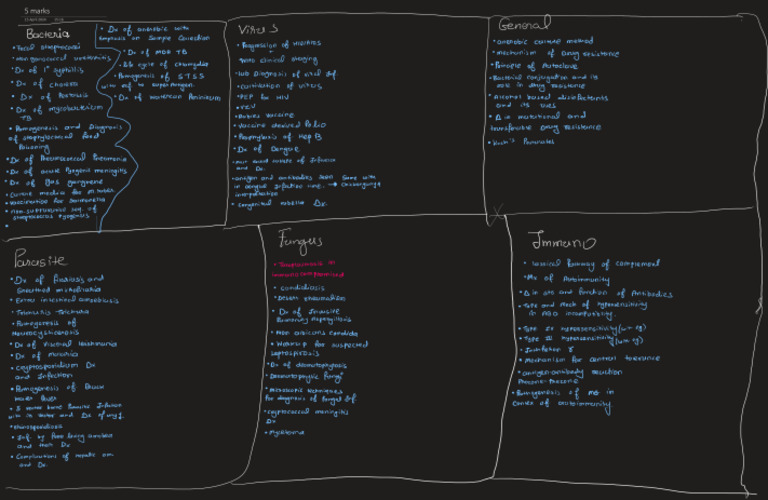 5 marks
Bacteria
• Fecal streptococci
• Non gonococcal urethritis
• Dx of 1° syphillis
• Dx of cholera
• Dx of Pertussis
• Dx of mycobacterium
TB
• Pathogenesis and Diagnosis
of staphylococcal food
Poisoning
• Dx of Pneumococcal Pneumonia
• Dx of acute Pyogenic meningitis
• Dx of Gas gangrene
• Culture media for
• Vaccination for
• Non-suppurative seq. of
streptococcus Pyogenes
• Dx of anaerobic with
Emphasis on Sample Collection
• Dx of MDR TB
• Life cycle of chlamydia
• Pathogenesis of STSS
with ref to superantigen
• Dx of
Virus
• Progression of HIV/AIDS
• WHO clinical staging
• lab Diagnosis of viral Inf.
• cultivation of virus
• PEP for HIV
• Rabies vaccine
• Vaccine derived Polio
• Prophylaxis of Hep B
• Dx of Dengue
and Dx.
• Antigen and antibodies seen
in dengue infection
interpretation
• congenital rubella Dx.
General
• anaerobic culture method
• mechanism of drug resistance
• Principle of Autoclave
• Bacterial conjugation and its
role in drug resistance
• Alcohol based disinfectants
and its uses
• Δ in mutational and
transferable Drug resistance
• Koch's Postulates
Parasite
• Dx of filariasis and
• Extra intestinal amoebiasis
• Trichuris Trichiura
• Pathogenesis of
Neurocysticercosis
• Dx of Visceral leishmania
• Dx of Malaria
• Cryptosporidium Dx
and Infection
• Pathogenesis of Black
water fever
• 3 water borne Parasitic Infection
• Rhinosporidiosis
• Inf. by free living amoeba
and their Dx
• Complications of hepatic am
and Dx.
Fungus
immunocompromised
• Candidiasis
• Dx of Invasive
Pulmonary Aspergillosis
• Non albicans candida
• Workup for suspected
leptospirosis
• Dx of dermatophytosis
• Dermatophytic fungi
• Microscopic techniques
for diagnosis of fungal Inf.
• cryptococcal meningitis
Dx
• Mycetoma
Immuno
• classical Pathway of complement
• Mx of Autoimmunity
• Δ in str and function of Antibodies
• Type and mech of hypersensitivity
in ABO incompatibility.
• Type hypersensitivity (with eg)
• Type III hypersensitivity (with eg)
• Interferon γ
• Mechanism for central tolerance
• antigen-antibody reaction
• Pathogenesis of MG in
context of autoimmunity